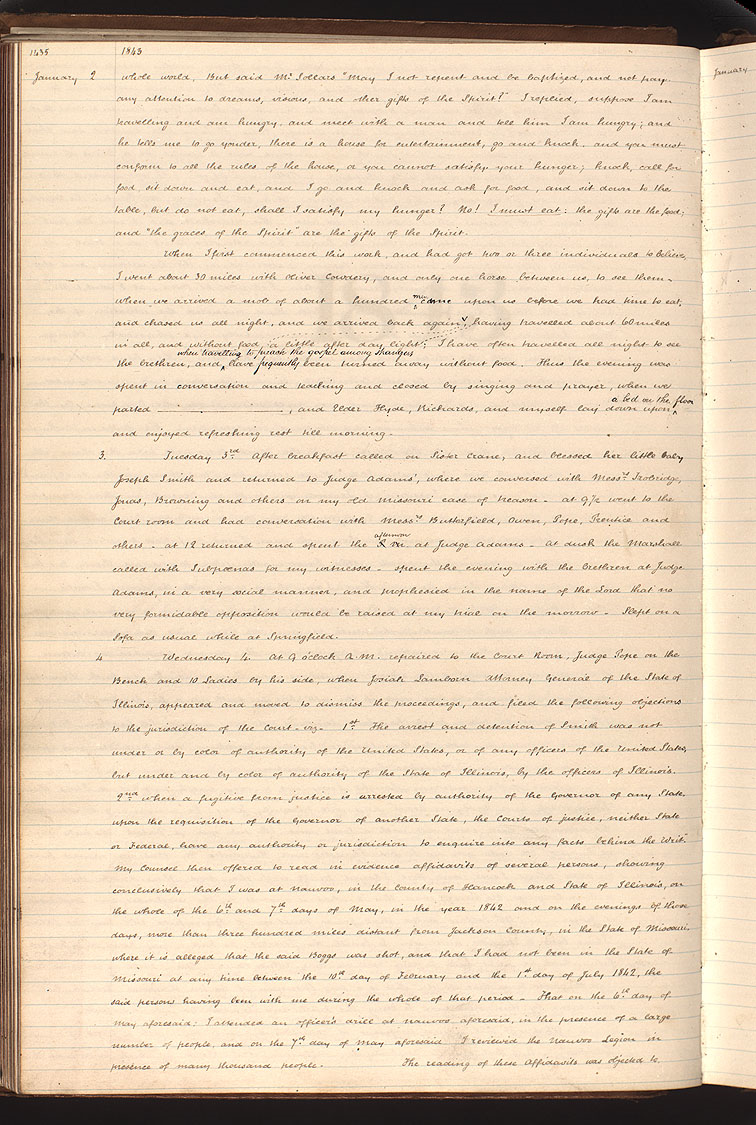 1435 1843
January 2 whole world, But said Mr. Sollars "May I not repent and be baptized, and not pay
any attention to dreams, visions, and other gifts of the Spirit?" I replied, suppose I am
travelling and am hungry, and meet with a man and tell him I am hungry; and
he tells me to go yonder, there is a house for entertainment, go and knock, and you must
conform to all the rules of the house, or you cannot satisfy your hunger; knock, call for
food, sit down and eat, and I go and knock and ask for food, and sit down to the
table, but do not eat, shall I satisfy my hunger? No! I must eat: the gifts are the food;
and "the graces of the Spirit" are the gifts of the Spirit.
When I first commenced this work, and had got two or three individuals to believe,
I went about 30 miles with Oliver Cowdery, and only one horse between us, to see them—
when we arrived a mob of about a hundred men came upon us before we had time to eat,
and chased us all night, and we arrived back again, having travelled about 60 miles
in all, and without food, a little after day light; I have often travelled all night to see
when travelling to preach the gospel among strangers
the brethren, and, have frequently been turned away without food. Thus the evening was
spent in conversation and teaching and closed by singing and prayer, when we
a bed on the floor
parted , and Elder Hyde, Richards, and myself lay down upon
and enjoyed refreshing rest till morning.
3. Tuesday 3rd. After breakfast called on Sister Crane, and blessed her little baby
Joseph Smith and returned to Judge Adams', where we conversed with Messrs. Trobridge,
Jonas, Browning and others on my old Missouri case of treason— at 9½ went to the
Court room and had conversation with Messrs. Butterfield, Owen, Pope, Prentice and
afternoon
others— at 12 returned and spent the at Judge Adams— At dusk the Marshall
called with Subpœnas for my witnesses— spent the evening with the Brethren at Judge
Adams, in a very social manner, and prophesied in the name of the Lord that no
very formidable opposition would be raised at my trial on the morrow— Slept on a
Sofa as usual while at Springfield.
4 Wednesday 4. At 9 o'clock A.M. repaired to the Court Room, Judge Pope on the
Bench and 10 Ladies by his side, when Josiah Lamborn Attorney General of the State of
Illinois, appeared and moved to dismiss the proceedings, and filed the following objections
to the jurisdiction of the Court—viz— 1st. The arrest and detention of Smith was not
under or by color of authority of the United States, or of any officers of the United States,
but under and by color of authority of the State of Illinois, by the officers of Illinois.
2nd when a fugitive from justice is arrested by authority of the Governor of any State
upon the requisition of the Governor of another State, the Courts of justice, neither State
or Federal, have any authority or jurisdiction to enquire into any facts behind the Writ."
My Counsel then offered to read in evidence affidavits of several persons, showing
conclusively that I was at Nauvoo, in the County of Hancock and State of Illinois, on
the whole of the 6th and 7th days of May, in the year 1842 and on the evenings of those
days, more than three hundred miles distant from Jackson County, in the State of Missouri,
where it is alleged that the said Boggs was shot, and that I had not been in the State of
Missouri at any time between the 10th day of February and the 1st day of July 1842, the
said persons having been with me during the whole of that period— That on the 6th day of
May aforesaid; I attended an officer's drill at Nauvoo aforesaid, in the presence of a large
number of people, and on the 7th day of May aforesaid I reviewed the Nauvoo Legion in
presence of many thousand people. The reading of these Affidavits was objected to
January